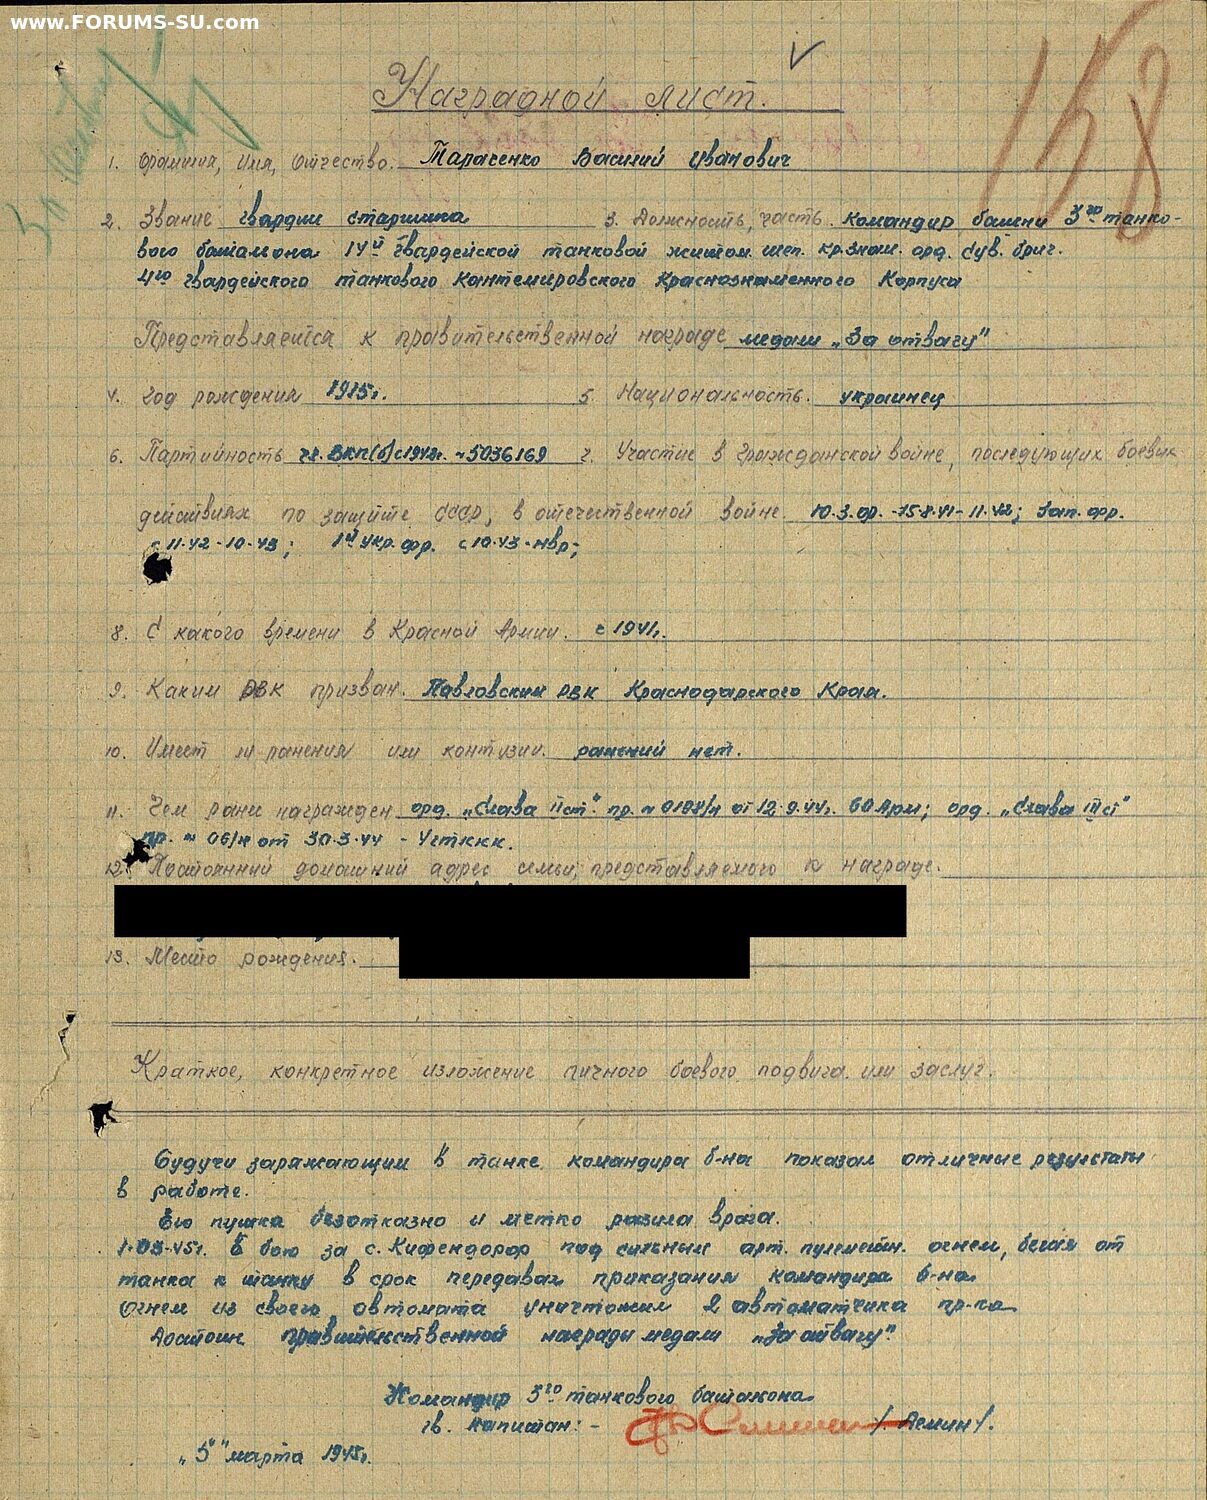 www.FORUMS-SU.com
158
Наградной лист.
1. Фамилия, Имя, Отчество. Тарасенко Василий Иванович
2. Звание гвардии старшина 3. Должность, часть. командир башни 3го танко-
вого батальона 14й Гвардейской танковой житом. шеп. кр.знам. орд. Сув. бриг.
4го гвардейского танкового Кантемировского Краснознаменного Корпуса
Представляется к правительственной награде медали „За отвагу"
4. Год рождения 1915г. 5. Национальность. украинец
6. Партийность чл. ВКП(б) с 1942г. №5036169 7. Участие в гражданской войне, последующих боевых
действиях по защите СССР, в отечественной войне Ю.З.фр. -15.8.41-11.42; Зап. фр.
с 11.42-10.43; 1й Укр. фр. с 10.43-мвр;
8. С какого времени в Красной Армии. с 1941г.
9. Каким РВК призван. Павловским РВК Краснодарского Края.
10. Имеет ли ранения или контузии. ранений нет.
11. Чем ранее награжден орд. „Слава II ст". пр. № 0198/н от 12.9.44г. 60 Арм; орд. „Слава III ст"
пр. № 06/н от 30.3.44 - Угткккк.
12. Постоянный домашний адрес семьи, представляемого к награде.
13. Место рождения.
Краткое, конкретное изложение личного боевого подвига или заслуг.
Будучи заряжающим в танке командира б-на показал отличные результаты
в работе.
Его пушка безотказно и метко разила врага.
1.03.45г. В бою за с. Кифендорф под сильным арт. пулеметн. огнем, бегая от
танка к танку в срок передавал приказания командира б-на
Огнем из своего автомата уничтожил 2 автоматчика пр-ка
Достоин правительственной награды медали „За отвагу".
Командир 3го танкового батальона
гв. капитан: - /Демин/.
„5" марта 1945г.